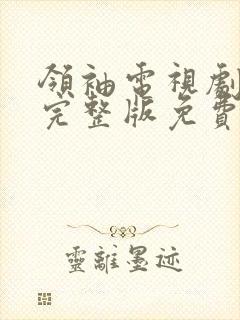 領袖電視劇
完整版免費
靈離墨迹